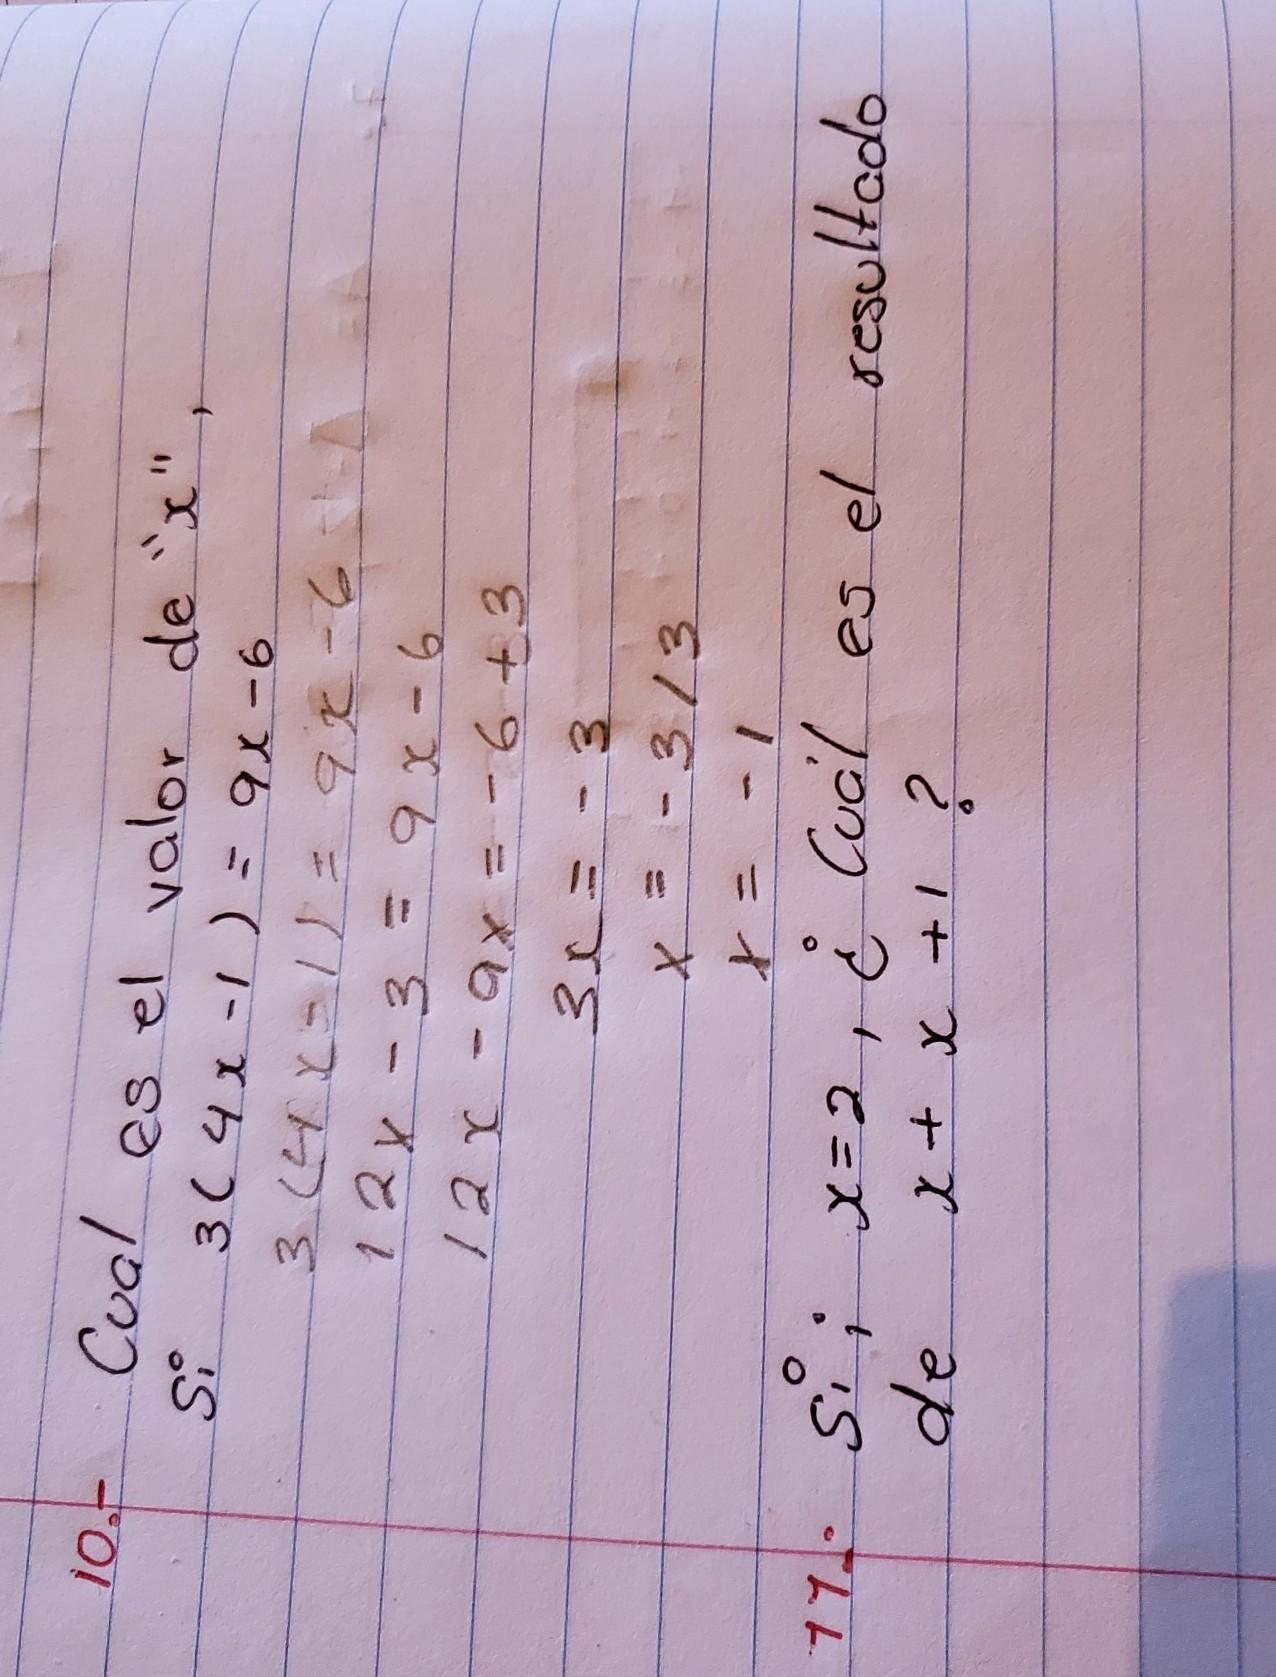 10.- Cual es el valor de "x",
Si 3(4x-1)=9x-6
3(4x-1)=9x-6
12x-3=9x-6
12x-9x=-6+3
3x=-3
x=-3/3
x=-1
11.- Si; x=2, ¿Cuál es el resultado
de x+x+1?